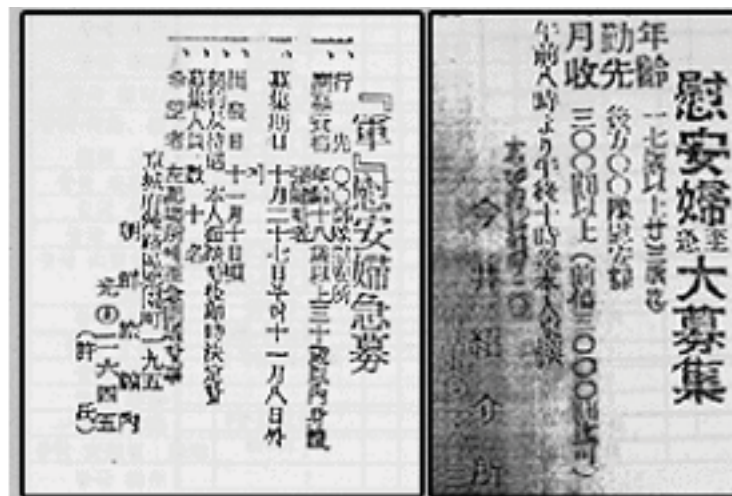 慰安婦至急大募集
年齢 一七歳以上廿三歳迄
勤先 後方〇〇隊慰安部
月收 三〇〇圓以上(前借三〇〇〇圓迄可)
午前八時より午後十時迄本人來談
今井紹介所
『軍』慰安婦急募
一、行先 〇〇部隊慰安所
一、應募資格 年齡十八歲以上三十歲以內身體
一、募集期日 十月二十七日부터十一月八日外지
一、出發日 十一月十日頃
一、契約及待遇 本人面談後即時決定함
一、募集人員 數十名
一、希望者 左記場所에至急問議事
京城府鍾路區樂園町一九五
朝鮮旅館內
光③二六四五
(許氏)